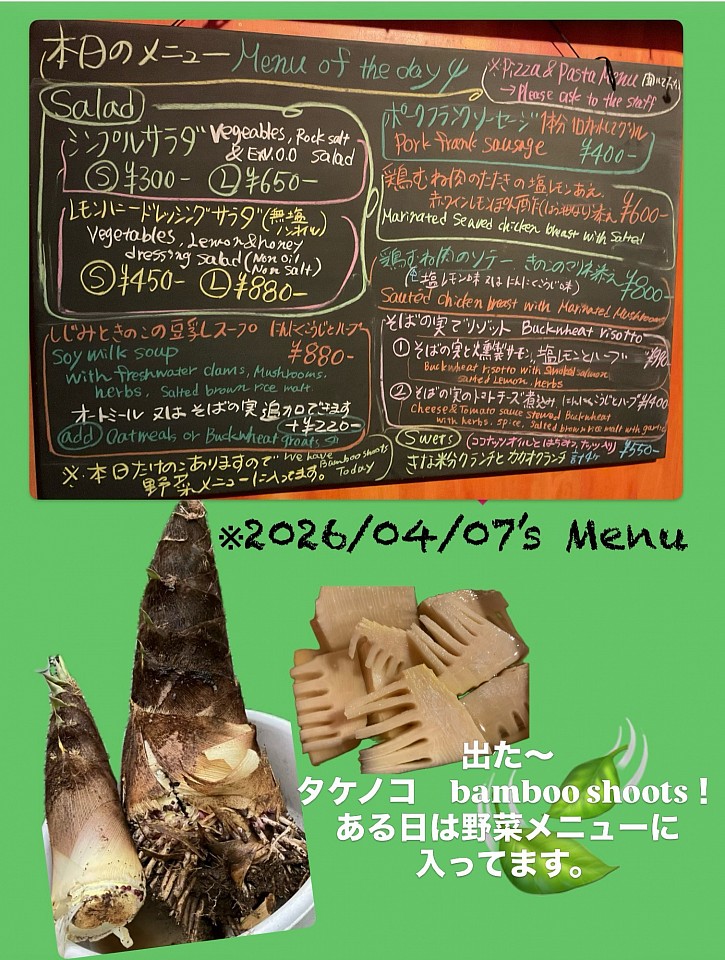 本日のメニュー Menu of the day
※Pizza & Pasta Menu
→Please ask to the staff
Salad
シンプルサラダ Vegeables, Rock salt
& EX.V.O.O salad
Ⓢ ¥300- Ⓛ ¥650-
レモンハニードレッシングサラダ(無塩
ノンオイル)
Vegetables, Lemon & honey
dressing salad (Non oil
Non salt)
Ⓢ ¥450- Ⓛ ¥880-
しじみときのこの豆乳スープ にんにくこうじとハーブ
Soy milk soup ¥880-
with freshwater clams, Mushrooms.
herbs, Salted brown rice malt.
オートミール 又は そばの実 追加できます
+¥220-
add Oatmeals or Buckwheat groats
※本日だけのこありますので We have
Bamboo shoots
Today
野菜メニューに入ってます。
ポークフランクソーセージ
Pork frank sausage ¥400-
鶏むね肉のたたきの塩レモンあえ、
¥600-
Marinated Seared chicken breast with Salted
鶏むね肉のソテー きのこのマリネ添え ¥800-
(塩レモン味 又は にんにくこうじ味)
Sauted chicken breast with Marinated Mushrooms
そばの実でリゾット Buckwheat risotto
① そばの実と燻製サーモン、塩レモンとハーブ
Buckwheat risotto with Smoked salmon
salted Lemon, herbs
② そばの実のトマトチーズ煮込み にんにくこうじとハーブ
Cheese & Tomato sauce Stewed Buckwheat
with herbs, spice, Salted brown rice malt with garlic
Swets (ココナッツオイルとはちみつ、ナッツ入り)
きな粉クランチとカカオクランチ ¥550-
※2026/04/07's Menu
出た〜
タケノコ bamboo shoots！
ある日は野菜メニューに
入ってます。